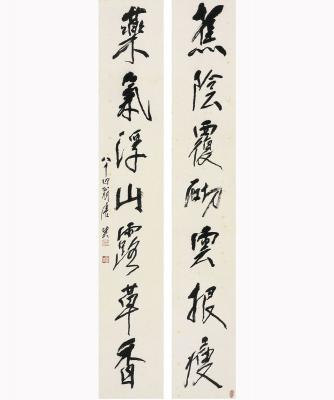 蕉陰覆砌雲根瘦
藥氣浮山露草香
八十四翁唐雲